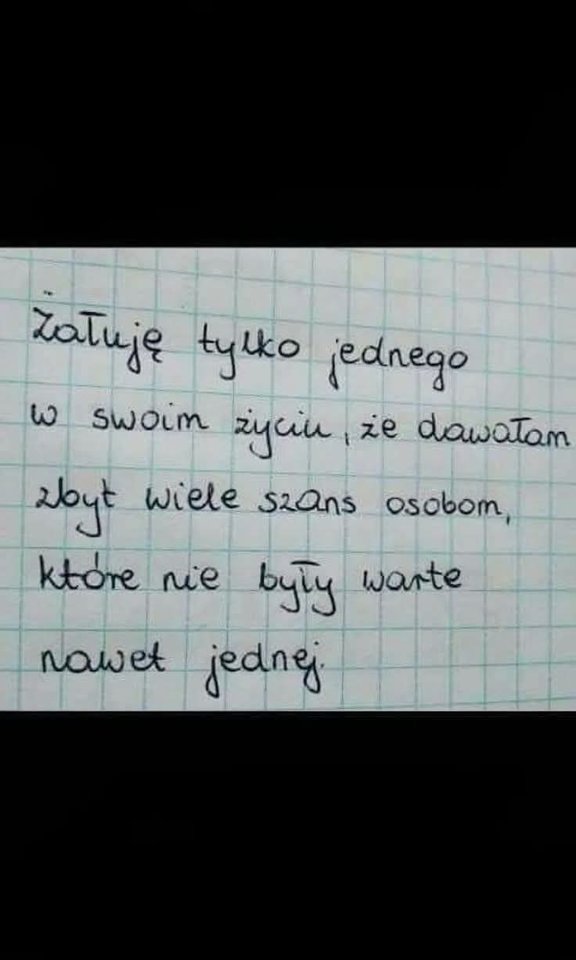 Żałuję tylko jednego
w swoim życiu, że dawałam
zbyt wiele szans osobom,
które nie były warte
nawet jednej.